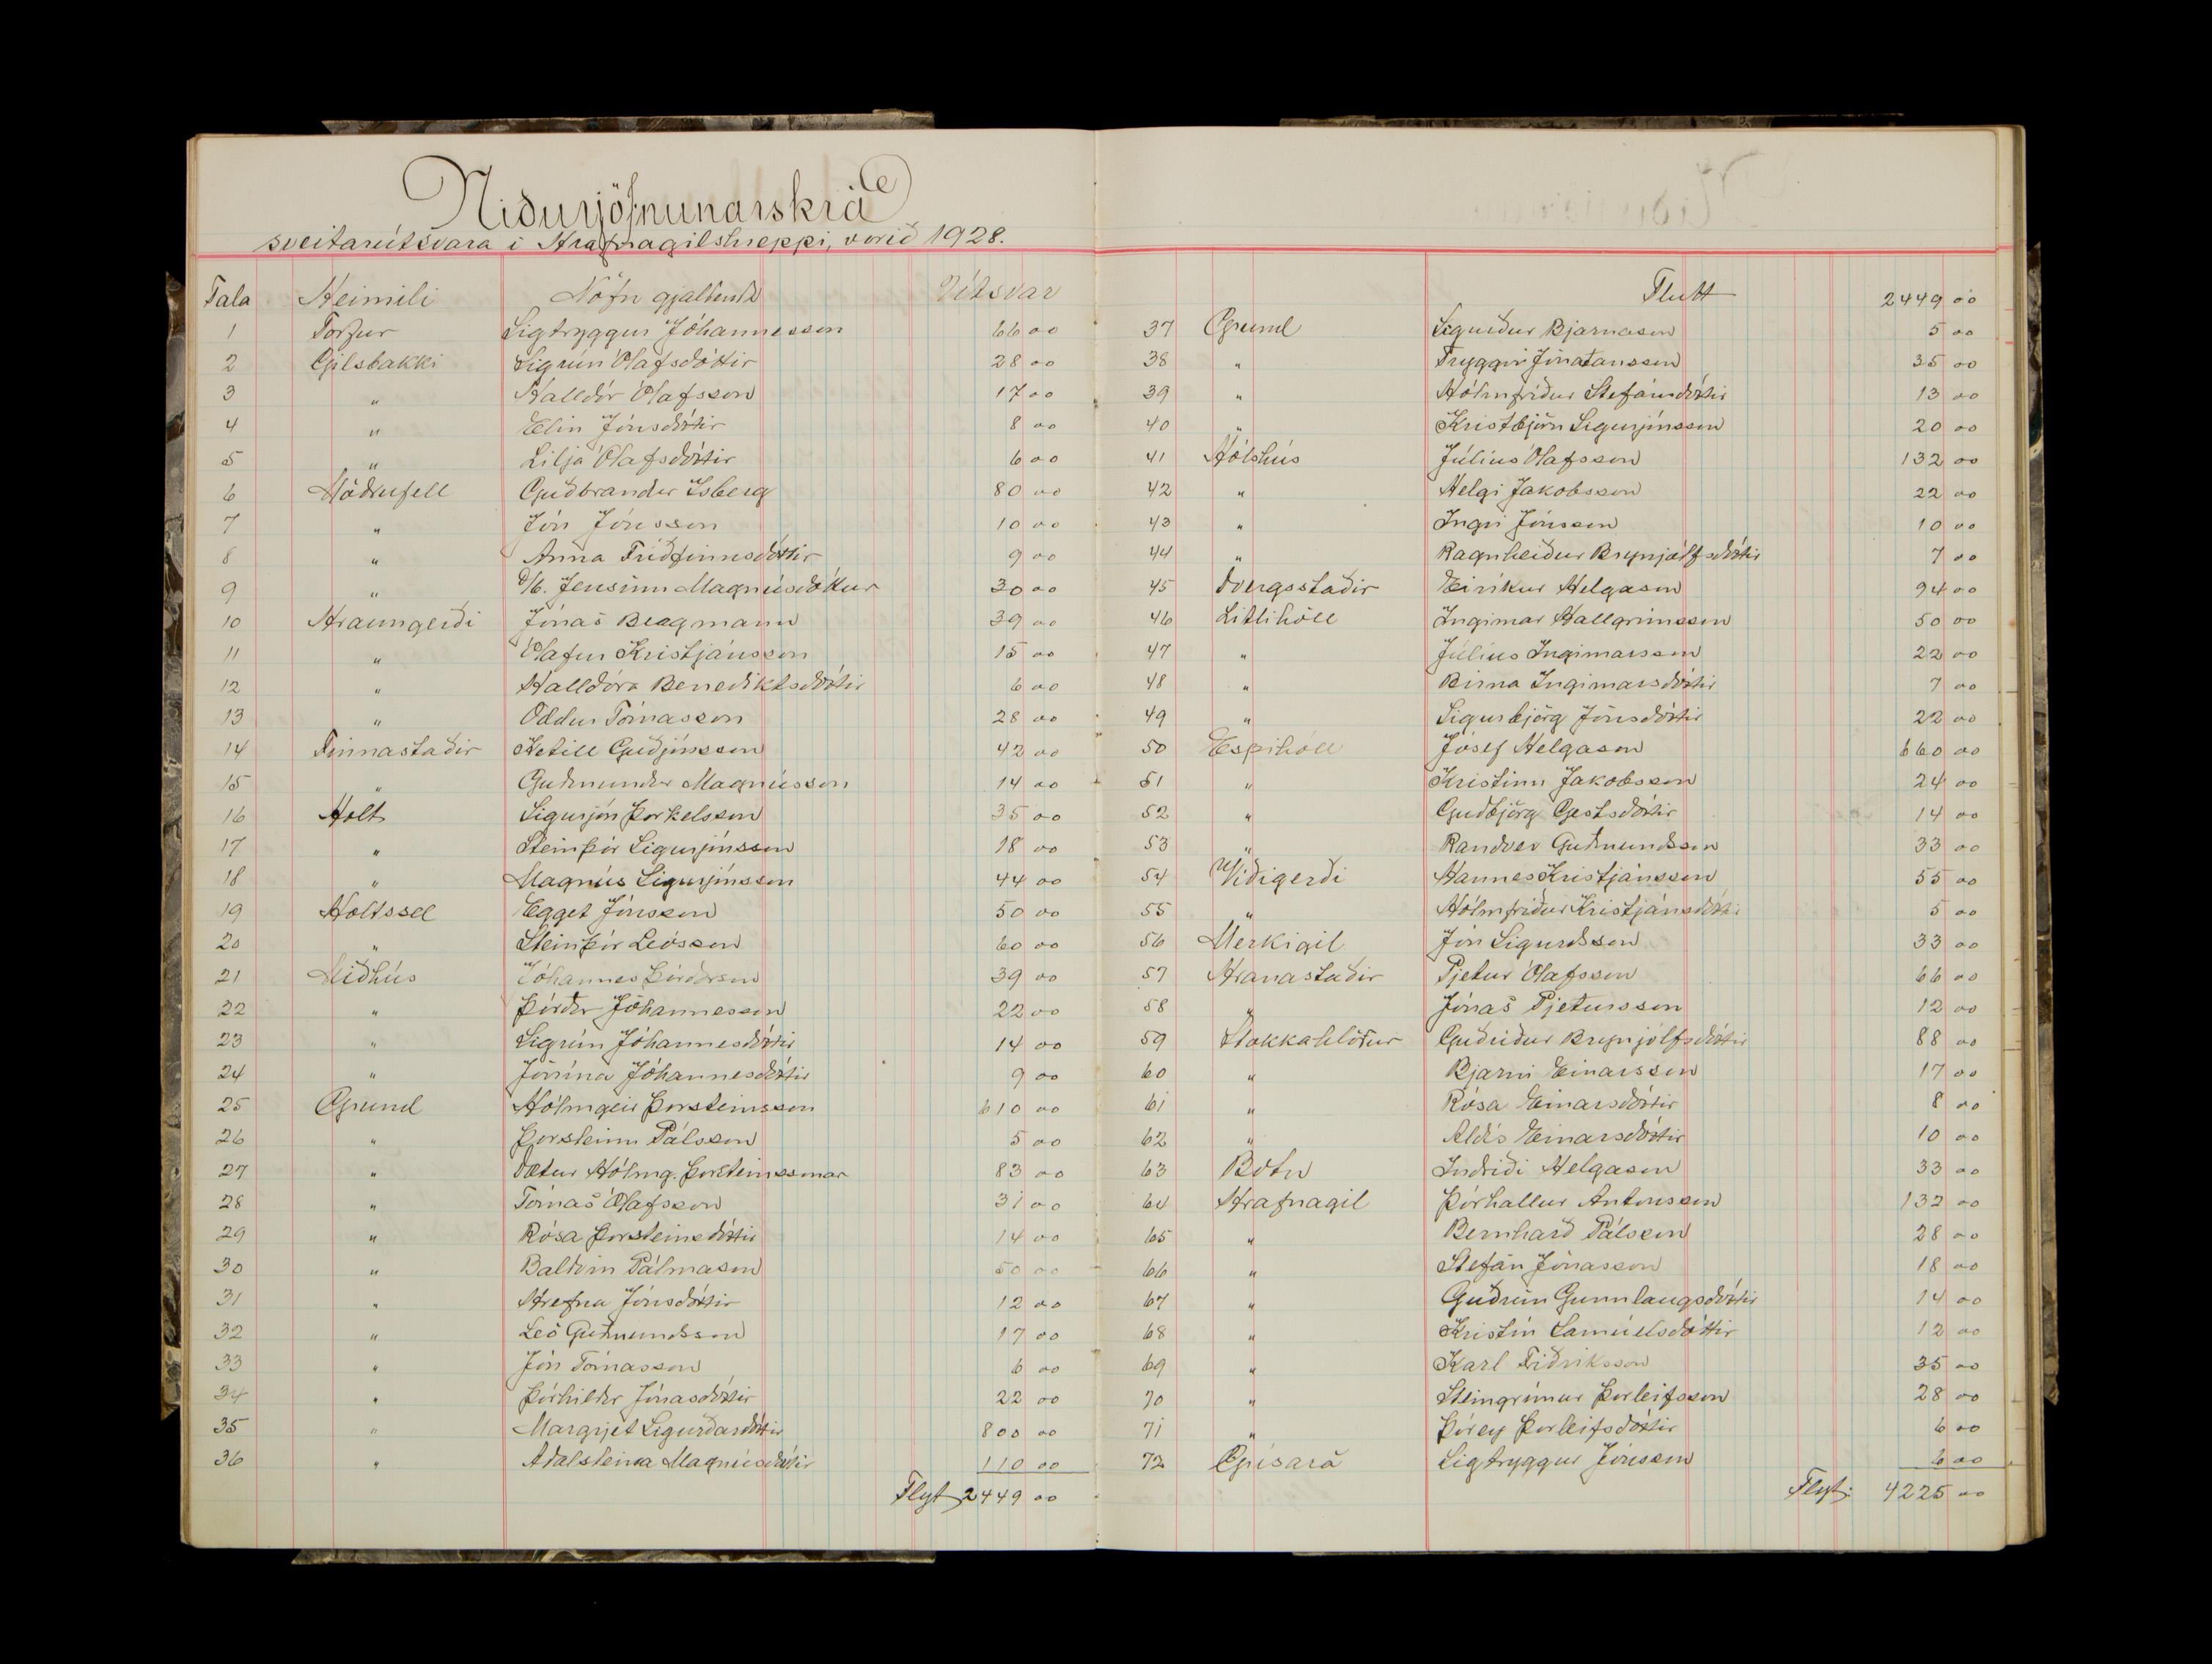 Niðurjöfnunarskrá
sveitarútsvara í Hrafnagilshreppi, vorið 1928.
Tala Heimili Nöfn gjaldenda Útsvar
1 Torfur Sigtryggur Jóhannesson 66 00
2 Gilsbakki Sigrún Ólafsdóttir 28 00
3 " Halldór Ólafsson 17 00
4 " Elin Jónsdóttir 8 00
5 " Lilja Ólafsdóttir 6 00
6 Möðrufell Guðbrandur Ísberg 80 00
7 " Jón Jónsson 10 00
8 " Anna Friðfinnsdóttir 9 00
9 " D/b. Jensínu Magnúsdóttur 30 00
10 Hraungerði Jónas Bergmann 39 00
11 " Ólafur Kristjánsson 15 00
12 " Halldóra Benediktsdóttir 6 00
13 " Oddur Tómasson 28 00
14 Finnastaðir Ketill Guðjónsson 42 00
15 " Guðmundur Magnússon 14 00
16 Holt Sigurjón Þorkelsson 35 00
17 " Steinþór Sigurjónsson 18 00
18 " Magnús Sigurjónsson 44 00
19 Holtssel Egget Jónsson 50 00
20 " Steinþór Leósson 60 00
21 Miðhús Jóhannes Þórðarson 39 00
22 " Þórður Jóhannesson 22 00
23 " Sigrún Jóhannesdóttir 14 00
24 " Jónína Jóhannesdóttir 9 00
25 Grund Hólmgeir Þorsteinsson 610 00
26 " Þorsteinn Pálsson 5 00
27 " Dætur Hólmg. Þorsteinssonar 83 00
28 " Tómas Ólafsson 31 00
29 " Rósa Þorsteinsdóttir 14 00
30 " Baldvin Pálmason 50 00
31 " Hrefna Jónsdóttir 12 00
32 " Leó Guðmundsson 17 00
33 " Jón Tómasson 6 00
34 " Þórhildur Jónasdóttir 22 00
35 " Margrjet Sigurðardóttir 800 00
36 " Aðalsteina Magnúsdóttir 110 00
Flyt 2449 00
Flutt 2449 00
37 Grund Sigurður Bjarnason 5 00
38 " Tryggvi Jónatansson 35 00
39 " Hólmfríður Stefánsdóttir 13 00
40 " Kristbjörn Sigurjónsson 20 00
41 Hólshús Júlíus Ólafsson 132 00
42 " Helgi Jakobsson 22 00
43 " Ingvi Jónsson 10 00
44 " Ragnheiður Brynjólfsdóttir 7 00
45 Dvergsstaðir Eiríkur Helgason 94 00
46 Litlihóll Ingimar Hallgrímsson 50 00
47 " Júlíus Ingimarsson 22 00
48 " Birna Ingimarsdóttir 7 00
49 " Sigurbjörg Jónsdóttir 22 00
50 Espihóll Jósef Helgason 660 00
51 " Kristinn Jakobsson 24 00
52 " Guðbjörg Gestsdóttir 14 00
53 " Randver Guðmundsson 33 00
54 Víðigerði Hannes Kristjánsson 55 00
55 " Hólmfríður Kristjánsdóttir 5 00
56 Merkigil Jón Sigurðsson 33 00
57 Hranastaðir Pjetur Ólafsson 66 00
58 " Jónas Pjetursson 12 00
59 Stokkahlöður Guðríður Brynjólfsdóttir 88 00
60 " Bjarni Einarsson 17 00
61 " Rósa Einarsdóttir 8 00
62 " Aldís Einarsdóttir 10 00
63 Botn Indriði Helgason 33 00
64 Hrafnagil Þórhallur Antonsson 132 00
65 " Bernharð Pálsson 28 00
66 " Stefán Jónasson 18 00
67 " Guðrún Gunnlaugsdóttir 14 00
68 " Kristín Samúelsdóttir 12 00
69 " Karl Friðriksson 35 00
70 " Steingrímur Þorleifsson 28 00
71 " Þórey Þorleifsdóttir 6 00
72 Grísará Sigtryggur Jónsson 6 00
Flyt: 4225 00